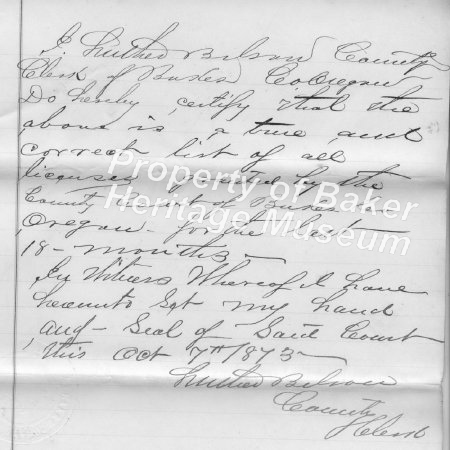 I. Luther B Ison County
Clerk of Baker Co Oregon
Do hereby certify that the
above is a true and
correct list of all
licenses granted by the
County Court of Baker Co
Oregon for the last
18 - months -
In Witness Whereof I have
hereunto Set my hand
and - Seal of Said Court
this Oct 7th 1873 -
Luther B Ison
County
Clerk
Property of Baker
Heritage Museum